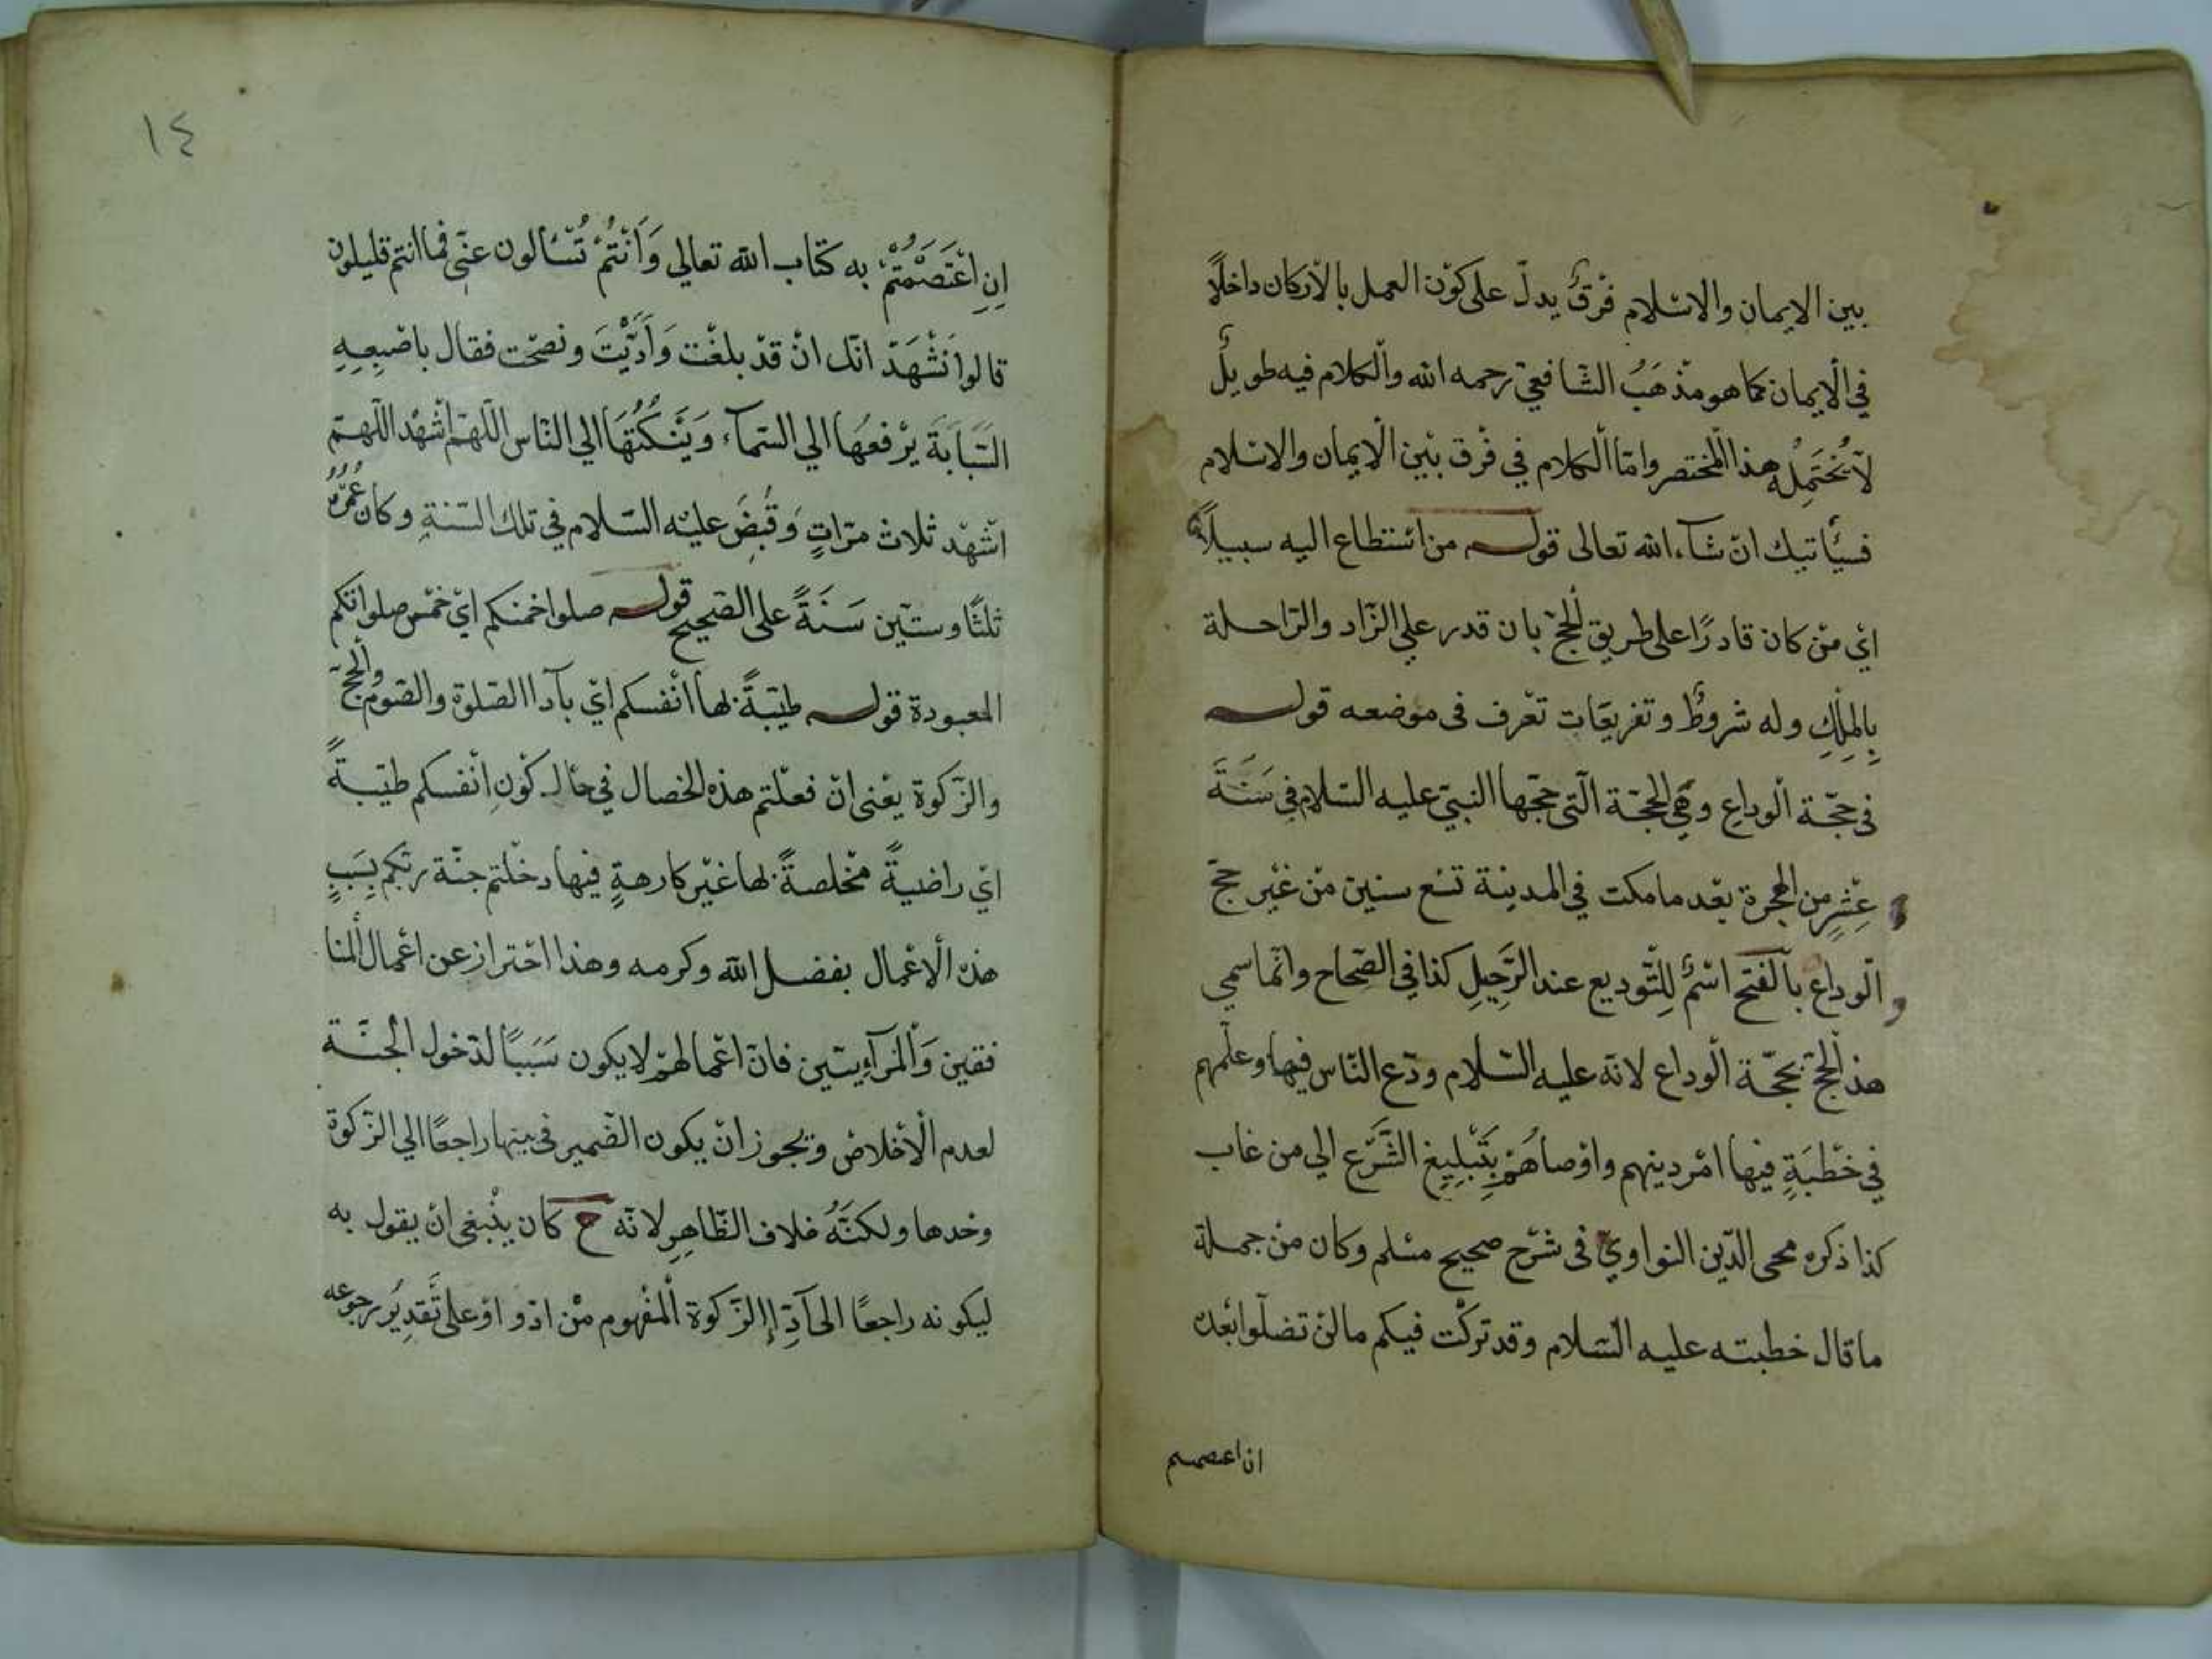 بين الايمان والاسلام فرقٌ يدلّ على كوْن العمل بالاركان داخلًا
في الايمان كما هو مذْهَبُ الشّافعيّ رحمه الله والكلام فيه طويلٌ
لا يُحْتَمِلُه هذا المختصر وامّا الكلام في فرْق بيْن الايمان والاسلام
فسيأتيك انْ شآء الله تعالى قوله من اسْتطاع اليه سبيلًا
ايْ منْ كان قادرًا على طريق الحجّ بان قدر علي الزّاد والرّاحلة
بِالمِلْكِ وله شروطٌ وتفريعَات تعْرف فى موْضعه قوله
فى حجّة الْوداعِ وهي الحجّة الّتى حجّها النبيّ عليه السّلام في سَنَةَ
عِشْرٍ من الهجرة بعْد ما مكت في المدينة تسْع سنين منْ غيْر حجّ
الْوداع بالْفتح اسْمٌ لِلتّوديع عند الرَّحِيلِ كذا في الصّحاح وانّما سمي
هذ الحجّ بحجّة الْوداع لانّه عليه السّلام ودّع النّاس فيها وعلّمهم
في خطْبَةٍ فيها امْر دينهم واوْصاهُمْ بِتَبْلِيغِ الشَّرْع الي من غاب
كذا ذكره محى الدّين النواويّ فى شرْح صحيح مسْلم وكان منْ جملة
ما قال خطبته عليه السّلام وقد تركْت فيكم ما لنْ تضلّوا بعْده
ان اعصمم
١٤
اِنِ اعْتَصَمْتُمْ به كتاب الله تعالي وَاَنْتُمْ تُسْئالون عنّي فما انتم قليلون
قالوا نَشْهَدْ انّك انْ قدْ بلغْت وَاَدَّيْتَ ونصحْت فقال باصْبِعِهِ
السَّبَابَةَ يرْفعُهَا الي السّمآء وَيَنْكُتُهَا الي النّاس اللّهمّ اشْهْد اللّهمّ
اشْهْد ثلاث مرّاتٍ وَقُبِضَ عليْه السّلام في تلك السّنةِ وكان عُمْرُهُ
ثلثًا وستّين سَنَةً على الصّحيح قوله صلوا خمنكم ايْ خمْس صلواتكم
المعبودة قوله طيّبةً بها انْفسكم ايْ بآداا الصّلوة والصّوم والحجّ
والزّكوة يعْنى انْ فعلْتم هذه الخصال في حال كوْنِ انْفسكم طيّبةً
ايْ راضيةً مخْلصةً بها غيْر كارهةٍ فيها دخلْتم جنّة ربّكم بِسَبَبٍ
هذه الْاعْمال بفضل الله وكرمه وهذا احْتراز عن اعْمال المنا
فقين وَالْمرآوِيِيّن فانّ اعْمالهمْ لا يكون سَبَبًا لدخول الجنّة
لعدم الْاخْلاص ويجوز انْ يكون الضّمير فى بها راجعًا الي الزّكوة
وحدها ولكنّهُ خلاف الظّاهِرِ لانّه ح كان ينْبغى انْ يقول به
ليكونه راجعًا الى آدِ االزّكوة الْمفْهوم منْ ادّوا وْ على تَقْدِيُر رجوعه